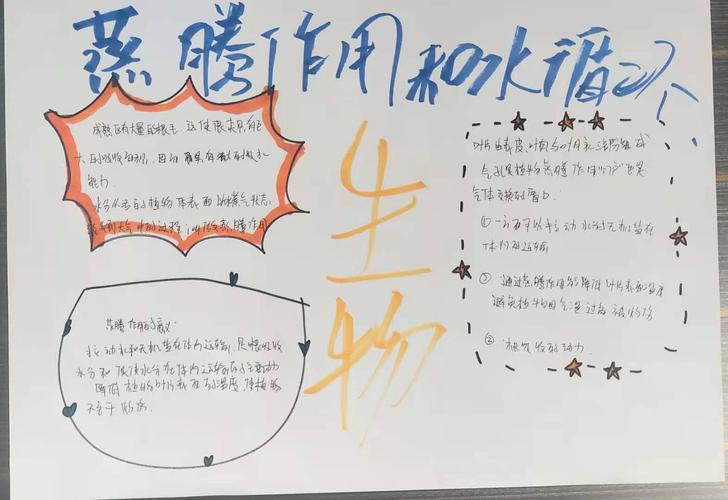 蒸腾作用和水循环
成熟区有大量的根毛。这使根具有
大的吸收面积，因
能力.
水分从活的植物体表面以水蒸气状态
散失到大气中的过程 叫做蒸腾作用
生物
蒸腾作用的意义
拉动水和无机盐在体内运输，是根吸收
水分和促使水分在体内运输的主要动力
降低植物叶片表面的温度 使植物
不至于灼伤.
叶片由表皮、叶肉与叶脉三部分组成
气孔是植物蒸腾作用的"门户"也是
气体交换的窗口.
① 可以拉动水分与无机盐在
体内的运输
② 通过蒸腾作用能降低叶片表面温度
避免植物因气温过高被灼伤
③ 根吸收的动力.